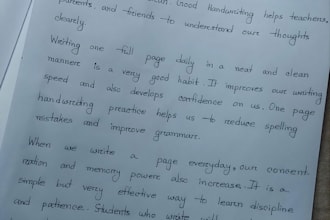 Good Handwriting helps teachers,
parents, and friends to understand our thoughts
clearly
Writing one full page daily in a neat and clean
manner is a very good habit. It improves our writing
speed and also develops confidence on us. One page
handwriting practice helps us to reduce spelling
mistakes and improve grammar.
When we write a page everyday, our concent
ration and memory power also increase. It is a
simple but very effective way to learn discipline
and patience. Students who write